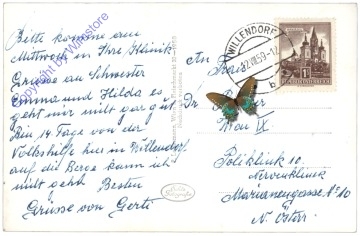 Bitte komme am
Mittwoch in Ihre Klinik
Grüsse an Schwester
Emma und Hilda es
geht mir nicht gar gut
Bin 14 Tage von der
Volkshilfe hier in Willendorf
auf die Berge kann ich
nicht gehn Besten
Grüsse von Gerti
WILLENDORF
2.VIII.59-12
b
An
Dr
Wien IX
Poliklinik 10.
Nervenklinik
Mariannengasse No 10
N. Österr.
Copyright by